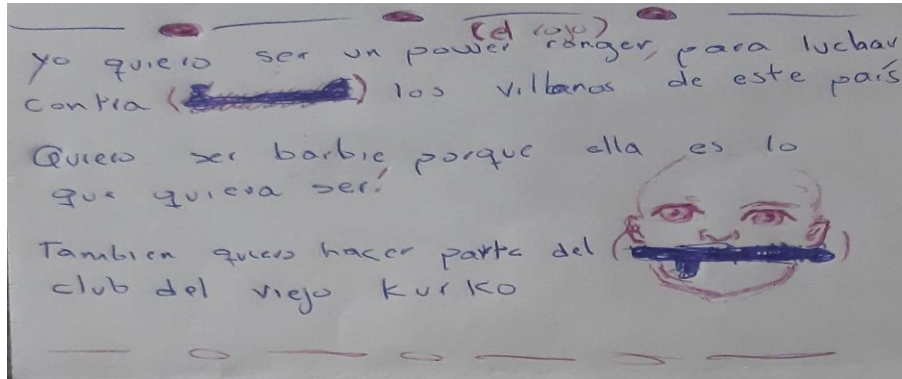 (el rojo)
yo quiero ser un power ranger, para luchar
contra ( ) los villanos de este país
Quiero ser barbie porque ella es lo
que quiera ser!
Tambien quiero hacer parte del ( )
club del viejo KurKo